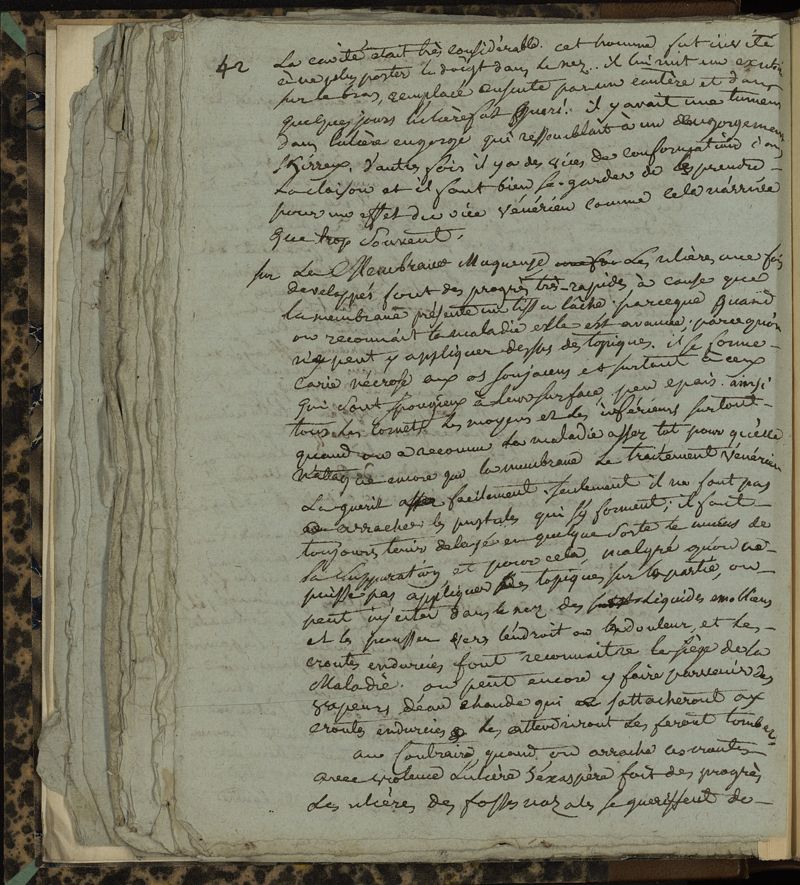 42
La cavité était très considérable. cet homme fut invité
à ne plus porter le doigt dans le nez. il lui mit un exutoi
sur le bras, remplacé ensuite par un cautère et dans
quelques jours l'ulcère fut guéri. il y avait une tumeur
dans l'ulcère engorgé qui ressemblait à un engorgement
skirreux. d'autres fois il y a des vices de conformation dans
la cloison et il faut bien se garder de les prendre
pour un effet du vice vénérien comme cela n'arrive
que trop souvent.
sur La Membrane Muqueuse Les ulcères une fois
developpés font des progrès très-rapides à cause que
la membrane présente un tissu lache. parceque quand
on reconnait la maladie elle est avancée. parcequ'on
ne peut y appliquer dessus des topiques. il se forme
carie nécrose aux os soujacens et surtout à ceux
qui sont spongieux à leur surface, peu epais. ainsi
tous les cornets les moyens et les inférieurs surtout
quand on a reconnu la maladie assez tot pour qu'elle
n'ataque encore que la membrane Le traitement vénérien
La guerit assez facilement. seulement il ne faut pas
arracher les pustules qui s'y forment; il faut
toujours tenir en quelque sorte le mucus de
la suppuration et pour cela, malgré qu'on ne
puisse pas appliquer des topiques sur la partie, on
peut injecter dans le nez des liquides emolliens
et les pousser vers l'endroit où la douleur, et les
croutes endurcies font reconnaitre le siège de la
Maladie. on peut encore y faire parvenir des
vapeurs d'eau chaude qui s'attacheront aux
croutes endurcies les attendriront les feront tomber
au Contraire quand on arrache ces croutes
avec violence l'ulcère s'exaspère fait des progrès
Les ulcères des fosses nazales se guerissent de